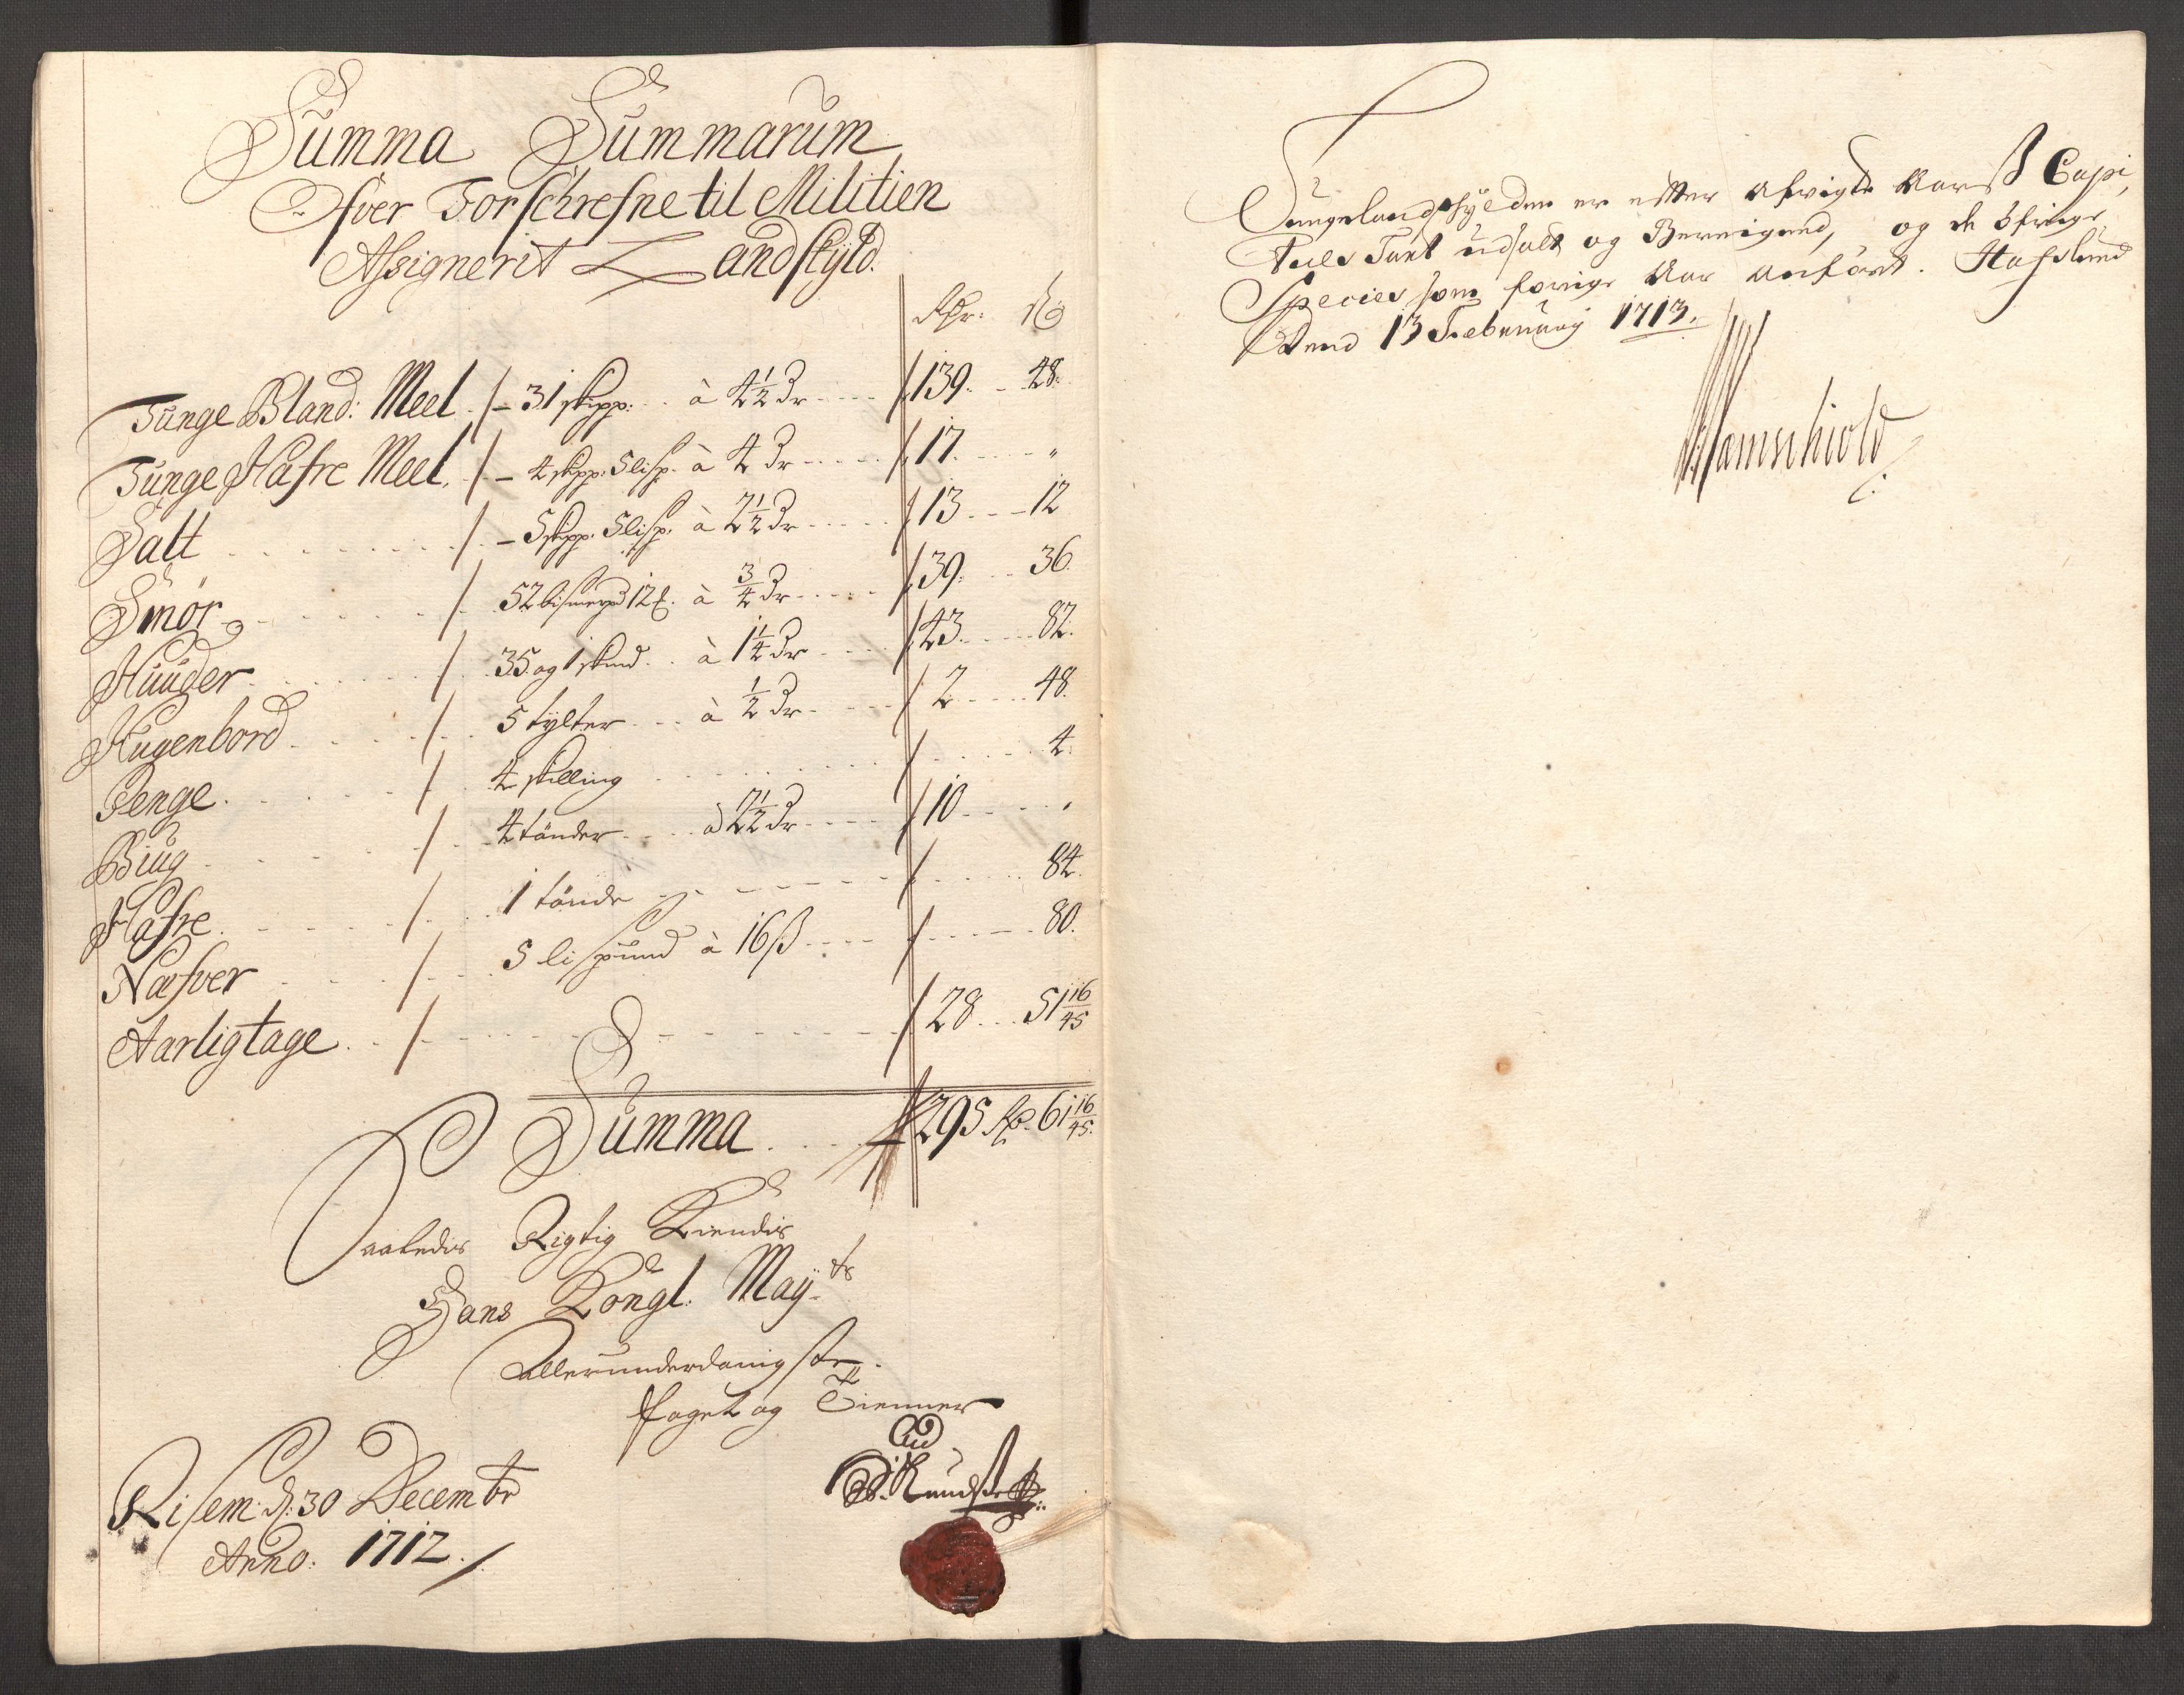 Summa Summarum
Ofver Forschrefne til Militien
Assignerit Landskyld.
Rdr: ß
Tunge Bland: Meel / – 31 skipp: à 4½ dr / 139. 48.
Tunge Hafre Meel. / – 4 skpp: 5 lisp. à 4 dr / 17. „
Salt / – 5 skpp. 5 lisp. à 2½ dr / 13 12
Smör / 52 bismerpd 12 ℔. à ¾ dr / 39. 36.
Huuder / 35 og 1 skind à 1¼ dr / 43. 82.
Hugenbord / 5 tylter à ½ dr / 2 48.
Penge / 4 skilling / 4.
Biug / 4 tönder à 2½ dr / 10 „
Hafre / 1 tönde / 84.
Næfver / 5 lispund à 16 ß / 80.
Aarligtage / 28 51 16/45
Summa 295 Rd. 61 16/45.
Saaledis Rigtig Kiendis
Hans Kongl. Mayts
allerunderdanigste
foget og Tienner
Risem: d: 30 Decembr
Anno: 1712.
Tungelandskylden er efter afvigte Aarß Capi,
tuls Taxt udsatt og Bereignet, og de öfrige
Species som forrige Aar anfört. Hafslund
Dend 13 Februarj 1713.
Wernschiold